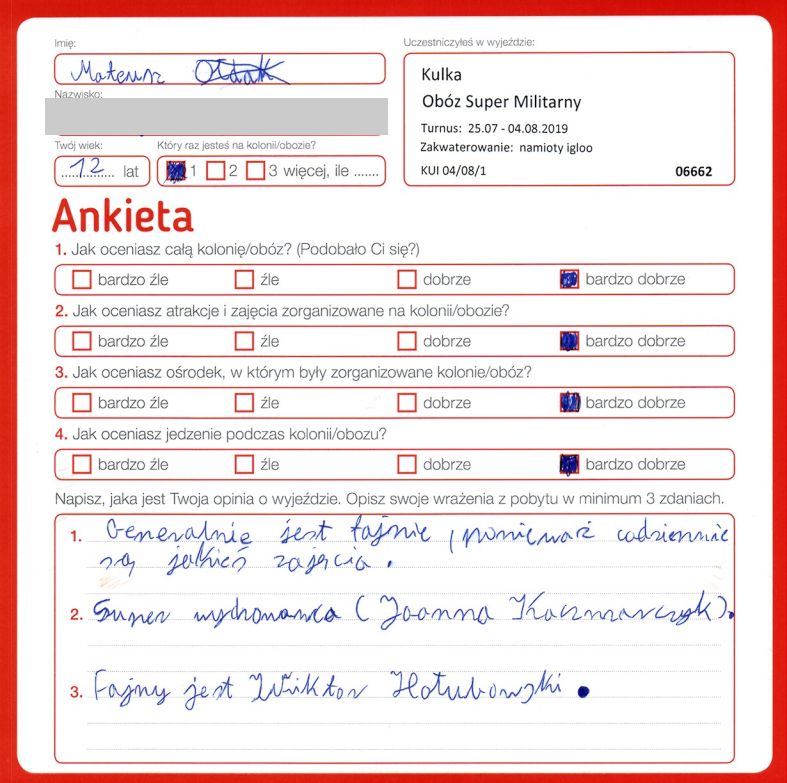 Imię:
Mateusz
Nazwisko:
Twój wiek:
12 lat
Który raz jesteś na kolonii/obozie?
1 2 3 więcej, ile .......
Uczestniczyłeś w wyjeździe:
Kulka
Obóz Super Militarny
Turnus: 25.07 - 04.08.2019
Zakwaterowanie: namioty igloo
KUI 04/08/1 06662
Ankieta
1. Jak oceniasz całą kolonię/obóz? (Podobało Ci się?)
bardzo źle źle dobrze bardzo dobrze
2. Jak oceniasz atrakcje i zajęcia zorganizowane na kolonii/obozie?
bardzo źle źle dobrze bardzo dobrze
3. Jak oceniasz ośrodek, w którym były zorganizowane kolonie/obóz?
bardzo źle źle dobrze bardzo dobrze
4. Jak oceniasz jedzenie podczas kolonii/obozu?
bardzo źle źle dobrze bardzo dobrze
Napisz, jaka jest Twoja opinia o wyjeździe. Opisz swoje wrażenia z pobytu w minimum 3 zdaniach.
1. Generalnie jest fajnie, ponieważ codziennie
są jakieś zajęcia.
2. Super wychowawca (Joanna Kaczmarczyk).
3. Fajny jest Wiktor Hołubowski.